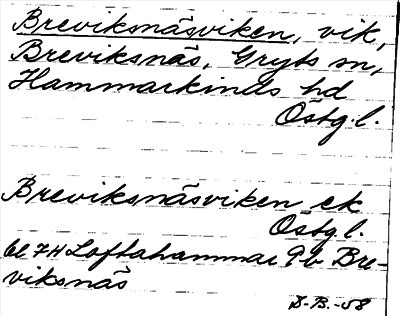 Breviksnäsviken, vik,
Breviksnäs, Gryts sn,
Hammarkinds hd
Östg.l.
Breviksnäsviken ek
Östg.l.
bl 7H Loftahammar 9b Bre-
viksnäs
D.-B.-58